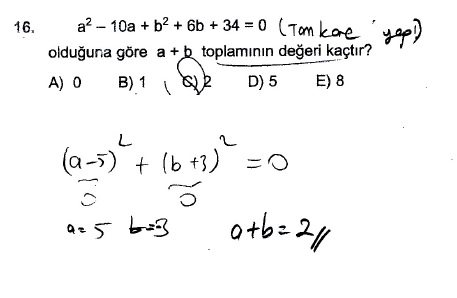 16. a² – 10a + b² + 6b + 34 = 0 (Tam kare yap!)
olduğuna göre a + b toplamının değeri kaçtır?
A) 0 B) 1 C) 2 D) 5 E) 8
(a-5)² + (b+3)² = 0
0 0
a = 5 b=-3 a+b=2//